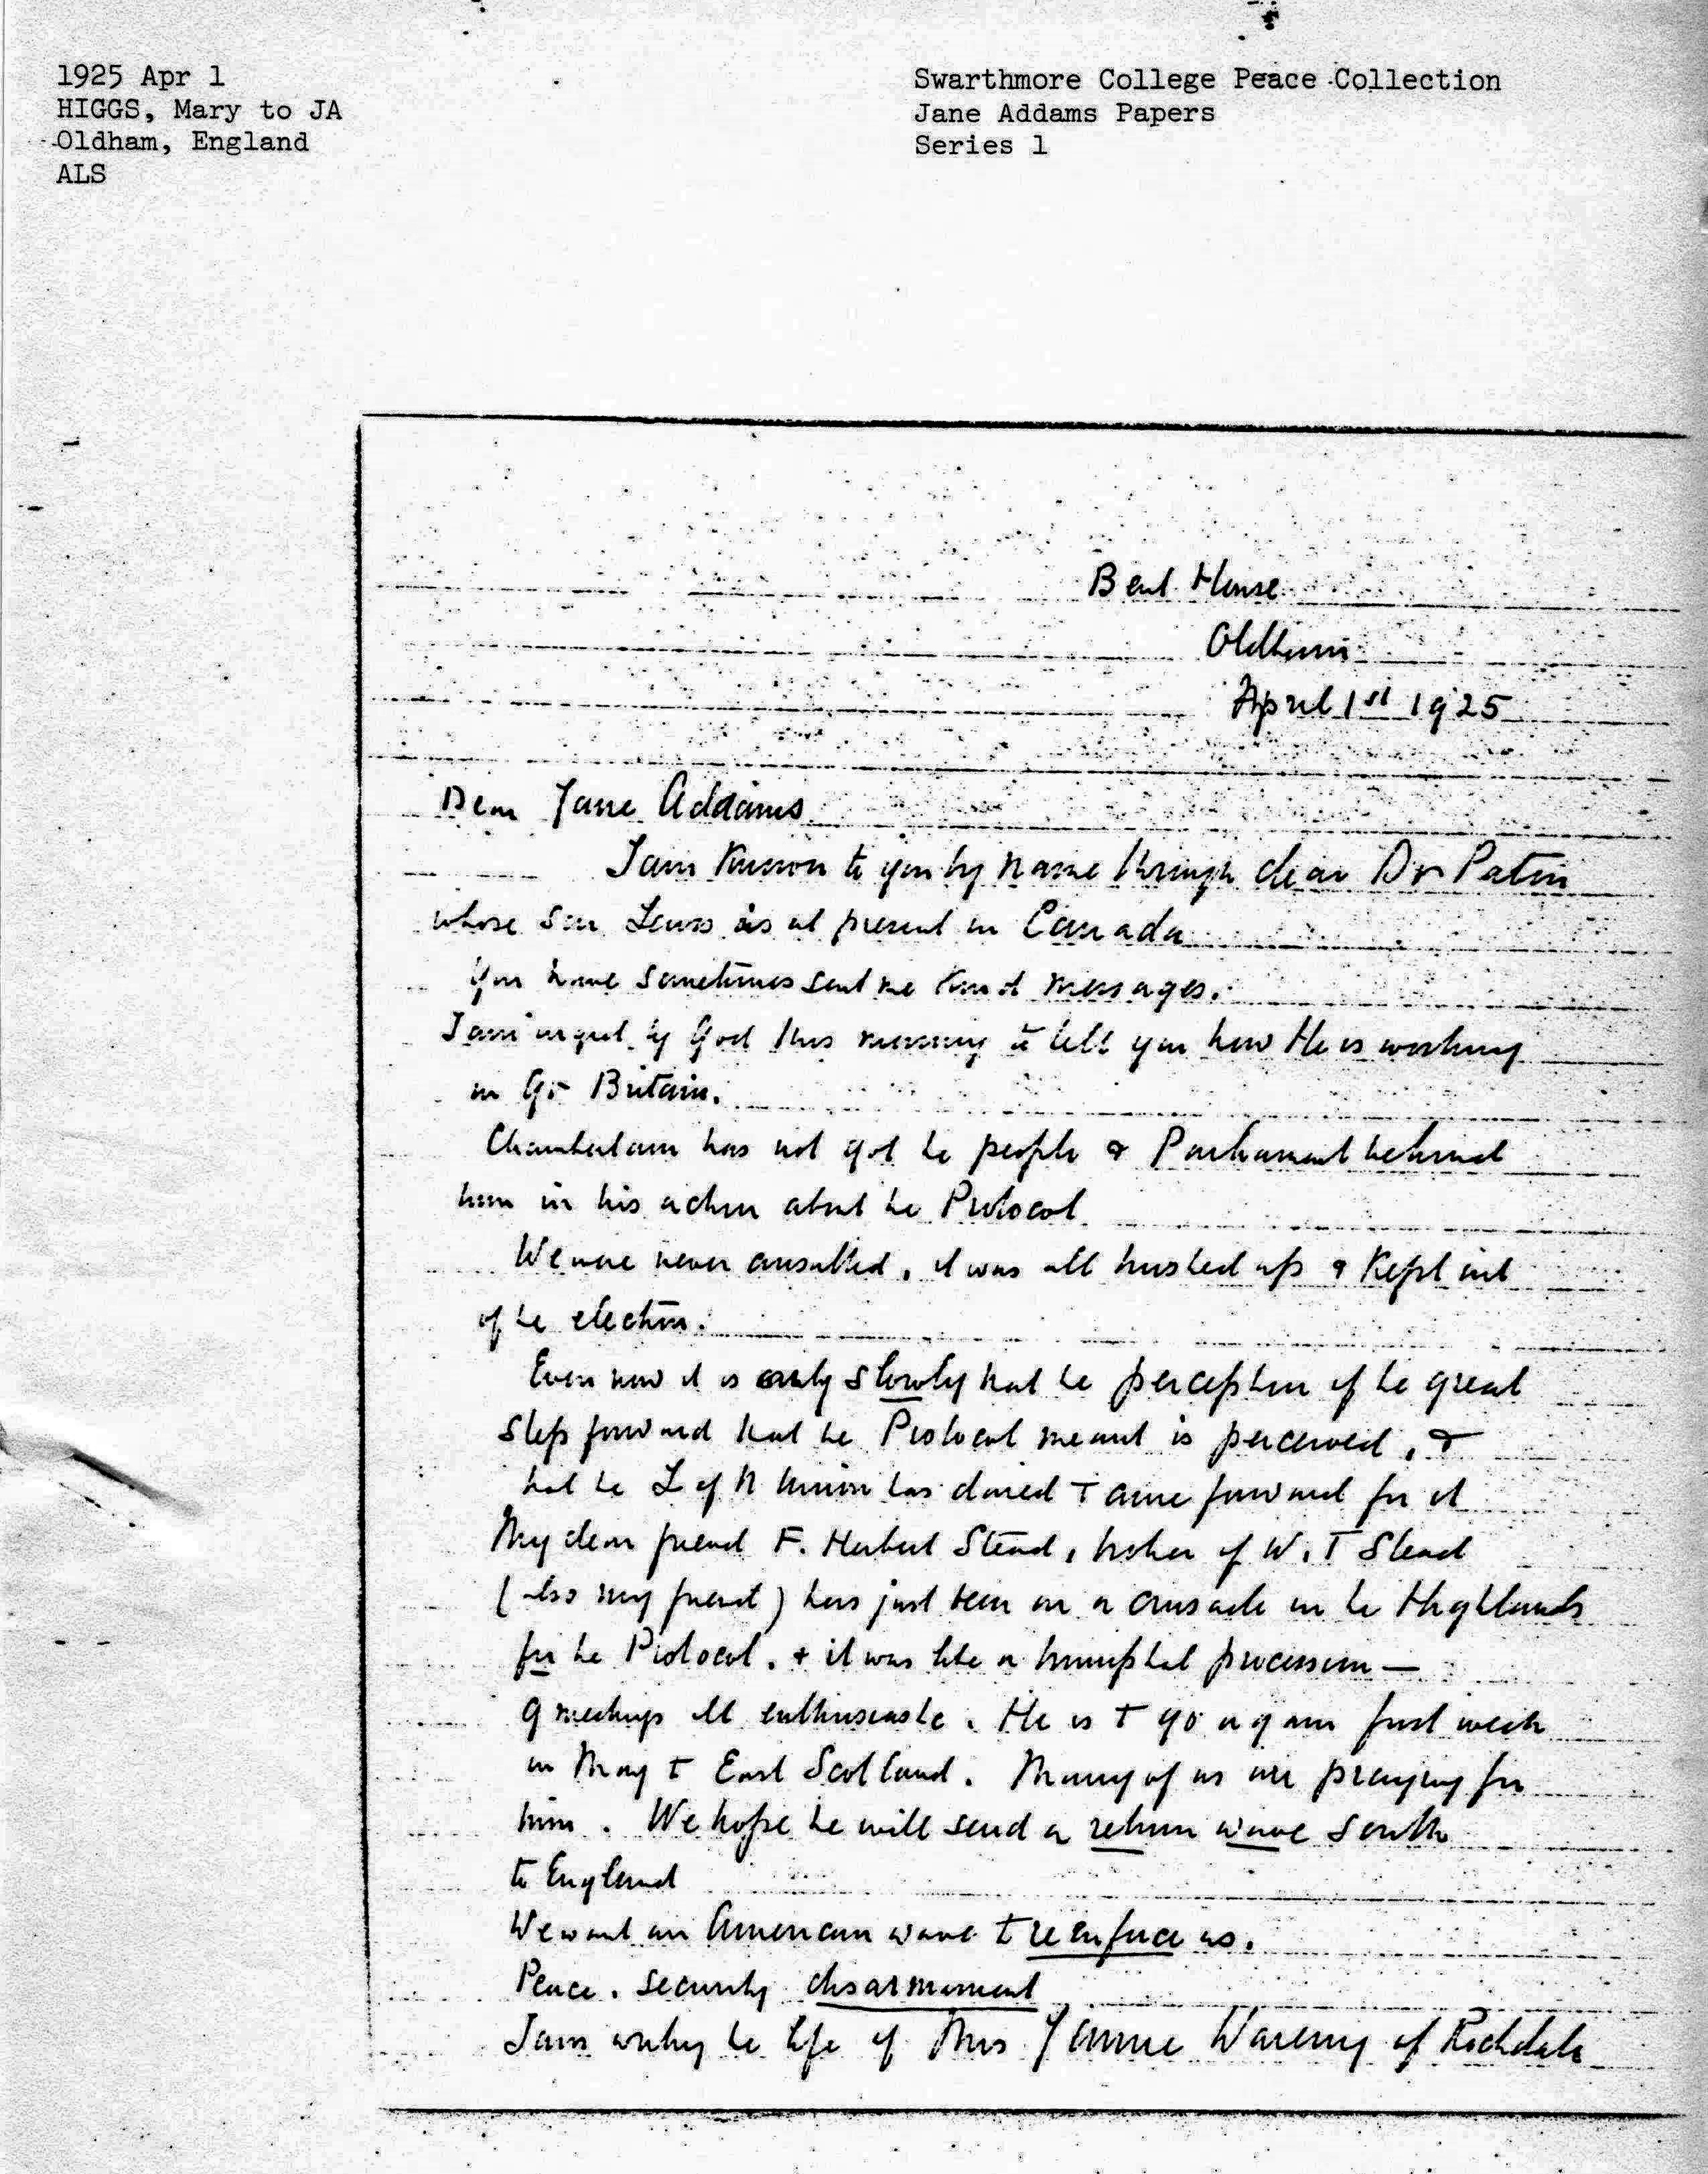 1925 Apr 1
HIGGS, Mary to JA
Oldham, England
ALS
Swarthmore College Peace Collection
Jane Addams Papers
Series 1
Bent House
Oldham
April 1st 1925
Dear Jane Addams
I am known to you by name through dear Dr Paton
whose son Lewis is at present in Canada
You have sometimes sent me kind messages.
I am urged by God this morning to tell you how He is working
in Gt Britain.
Chamberlain has not got the people & Parliament behind
him in his action about the Protocol
We were never consulted, it was all hushed up & kept out
of the election.
Even now it is only slowly that the perception of the great
step forward that the Protocol meant is perceived, &
that the L of N Union has dared to come forward for it
My dear friend F. Herbert Stead, brother of W. T Stead
(also my friend) has just been on a crusade in the Highlands
for the Protocol. & it was like a triumphal procession —
9 meetings all enthusiastic. He is to go again first week
in May to East Scotland. Many of us are praying for
him. We hope he will send a return wave south
to England
We want an American wave to reenforce us.
Peace. security disarmament
I am writing the life of Mrs Jannie Waring of Rochdale